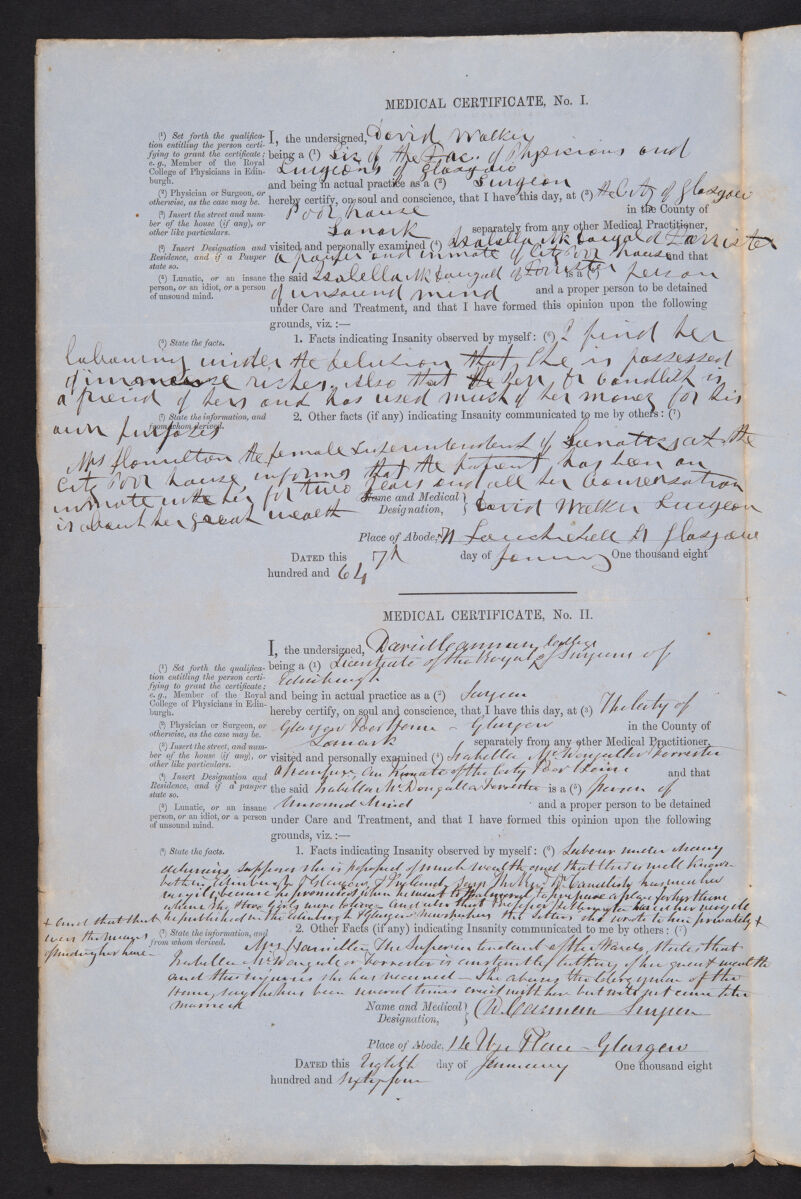 MEDICAL CERTIFICATE, No. I.
(¹) Set forth the qualifica-
tion entitling the person certi-
fying to grant the certificate;
e. g., Member of the Royal
College of Physicians in Edin-
burgh.
(²) Physician or Surgeon, or
otherwise, as the case may be.
(³) Insert the street and num-
ber of the house (if any), or
other like particulars.
(⁴) Insert Designation and
Residence, and if a Pauper
state so.
(⁵) Lunatic, or an insane
person, or an idiot, or a person
of unsound mind.
I, the undersigned, David Walker
being a (¹) Lic of the Fac. of Physicians and
Surgeons of Glasgow
and being in actual practice as a (²) Surgeon
hereby certify, on soul and conscience, that I have this day, at (³) the City of Glasgow
Poor house in the County of
Lanark separately from any other Medical Practitioner,
visited and personally examined (⁴) Isabella McDougald Forrister
a pauper and inmate of City Poor house and that
the said Isabella McDougall or Forrester is a (⁵) person
of unsound mind and a proper person to be detained
under Care and Treatment, and that I have formed this opinion upon the following
grounds, viz.:—
(⁶) State the facts.
1. Facts indicating Insanity observed by myself: (⁶) I find her
labouring under the delusion that She is possessed
of immense riches, also that the Rev Dr Candlish is
a friend of hers and has used much of her money for his
own purposes
(⁷) State the information, and
from whom derived.
2. Other facts (if any) indicating Insanity communicated to me by others: (⁷)
Mrs Hamilton the female Superintendent of Lunatics at the
City Poor house informs that the patient has been an
inmate with her for two years and all her Conversation
is about her great wealth
Name and Medical Designation, David Walker Surgeon
Place of Abode, Glasgow
DATED this 7th day of January One thousand eight
hundred and 64
MEDICAL CERTIFICATE, No. II.
(¹) Set forth the qualifica-
tion entitling the person certi-
fying to grant the certificate;
e. g., Member of the Royal
College of Physicians in Edin-
burgh.
(²) Physician or Surgeon, or
otherwise, as the case may be.
(³) Insert the street, and num-
ber of the house (if any), or
other like particulars.
(⁴) Insert Designation and
Residence, and if a pauper
state so.
(⁵) Lunatic, or an insane
person, or an idiot, or a person
of unsound mind.
I, the undersigned, David
being a (¹) Licentiate of the Royal College of Surgeons of
Edinburgh
and being in actual practice as a (²) Surgeon
hereby certify, on soul and conscience, that I have this day, at (³) The City of
Glasgow Poor House - Glasgow in the County of
Lanark separately from any other Medical Practitioner,
visited and personally examined (⁴) Isabella McDougall or Forrester
a Pauper, an Inmate of the City Poor House and that
the said Isabella McDougall or Forrester is a (⁵) Person of
Unsound Mind and a proper person to be detained
under Care and Treatment, and that I have formed this opinion upon the following
grounds, viz.:—
(⁶) State the facts.
1. Facts indicating Insanity observed by myself: (⁶) Labours under many
delusions, supposes she is possessed of much wealth and that this is well known
both in Edinburgh & Glasgow
he published in the Edinburgh & Glasgow newspapers the letters she wrote to him privately +
+ and that that
were the means
(⁷) State the information, and
from whom derived.
2. Other Facts (if any) indicating Insanity communicated to me by others: (⁷)
Mrs Hamilton, The Superintendent of the Wards, states that
Isabella McDougall or Forrester is constantly talking of her great wealth
and the injuries she has received - She abuses the clergyman of the
House, says he has been several times
married
Name and Medical Designation, Surgeon
Place of Abode, Place - Glasgow
DATED this Eighth day of January One thousand eight
hundred and sixty four